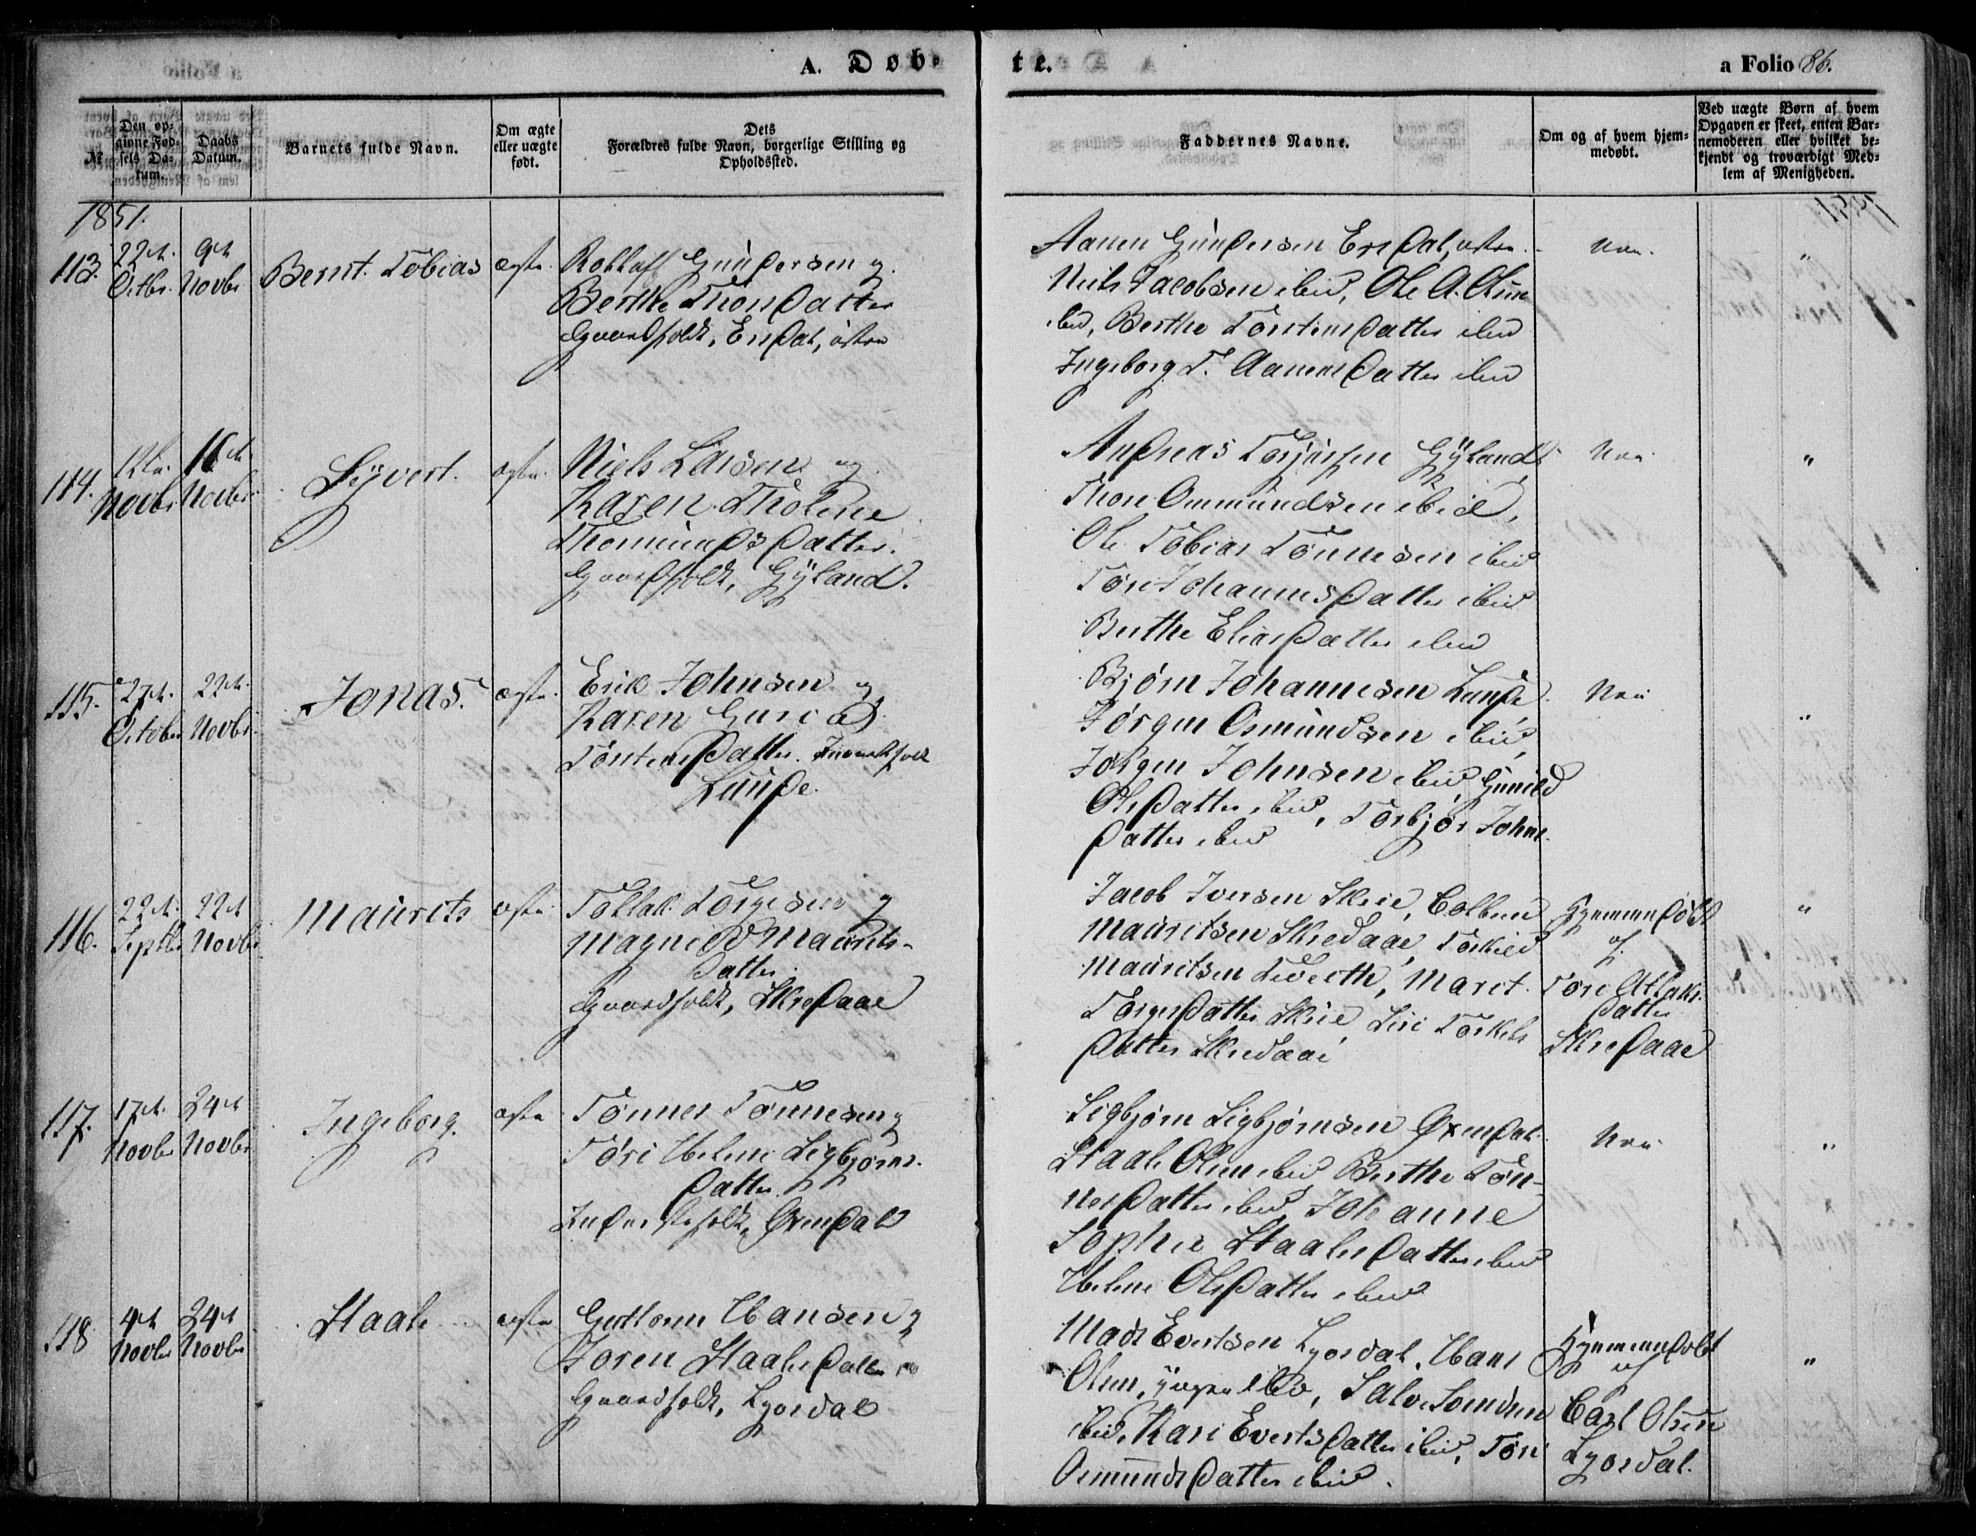 A. Døb-
te.
a Folio 86.
№
Den op-
givne Fød-
sels Da-
tum.
Daabs
Datum.
Barnets fulde Navn.
Om ægte
eller uægte
født.
Dets
Forældres fulde Navn, borgerlige Stilling og
Opholdssted.
Faddernes Navne.
Om og af hvem hjem-
medøbt.
Ved uægte Børn af hvem
Opgaven er skeet, enten Bar-
nemoderen eller hvilket be-
kjendt og troværdigt Med-
lem af Menigheden.
1851.
113.
22de
Octbr.
9de
Novbr
Bernt Tobias
ægte.
Gundersen og
Berthe Thorsdatter
Gaardfolk, Ersdal, østre
Aanen Gundersen Ersdal, østre
Niels Jacobsen ibid, Ole A. Olsen
ibid, Berthe Tønnesdatter ibid
Ingeborg T. Aanensdatter ibid
Nei.
"
114.
12te
Novbr
16de
Novbr.
Syvert.
ægte.
Niels Larsen og
Karen Tholine
datter.
Gaardfolk, Gyland.
Andreas Gyland,
Thore Ommundsen ibid,
Ole Tobias Tønnesen ibid
Tøri Johannesdatter ibid
Berthe Eliasdatter ibid
Nei
"
115.
27de
October
22de
Novbr.
Jonas.
ægte.
Erik Johnsen og
Karen Guri
Tønnesdatter.
Lunde.
Bjørn Johannesen Lunde.
Jørgen Osmundsen ibid,
Jørgen Johnsen ibid, Gunild
Olsdatter ibid, Torbjør Johns-
datter ibid
Nei
"
116.
22de
Septbr
22de
Novbr.
Maurits
ægte
Tollak Torgersen og
Magnild Maurits-
datter.
Gaardfolk, Skredaae
Jacob Iversen Skrie, Colben
Mauritsen Skredaae, Torkild
Mauritsen Tveeth, Maret
Torgersdatter Skrie, Siri Torkels
datter Skredaae
Hjemmedøbt
af
Tore Atlaks-
datter
Skredaae
"
117.
17de
Novbr
24de
Novbr.
Ingeborg.
ægte
Tønnes Tønnesen og
Tøri Helene Sigbjørns-
datter
Inderstefolk, Øxendal
Sigbjørn Sigbjørnsen Øxendal.
Staale Olsen ibid Berthe Tøn-
nesdatter ibid Johanne
Sophie Staalesdatter ibid
Helene Olsdatter ibid
Nei
"
118
4de
Novbr
24de
Novbr
Staale
ægte
Hansen og
Joren Staalesdatter
Gaardfolk, Lyordal
Mads Evertsen Lyordal, Hans
Olsen, ibid, Salve
ibid, Kari Evertsdatter ibid, Tøri
Osmundsdatter ibid.
Hjemmedøbt
af
Carl Olsen
Lyordal.
"